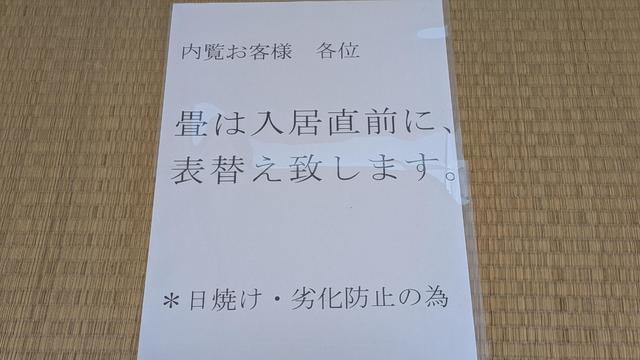 内覧お客様　各位
畳は入居直前に、
表替え致します。
＊日焼け・劣化防止の為